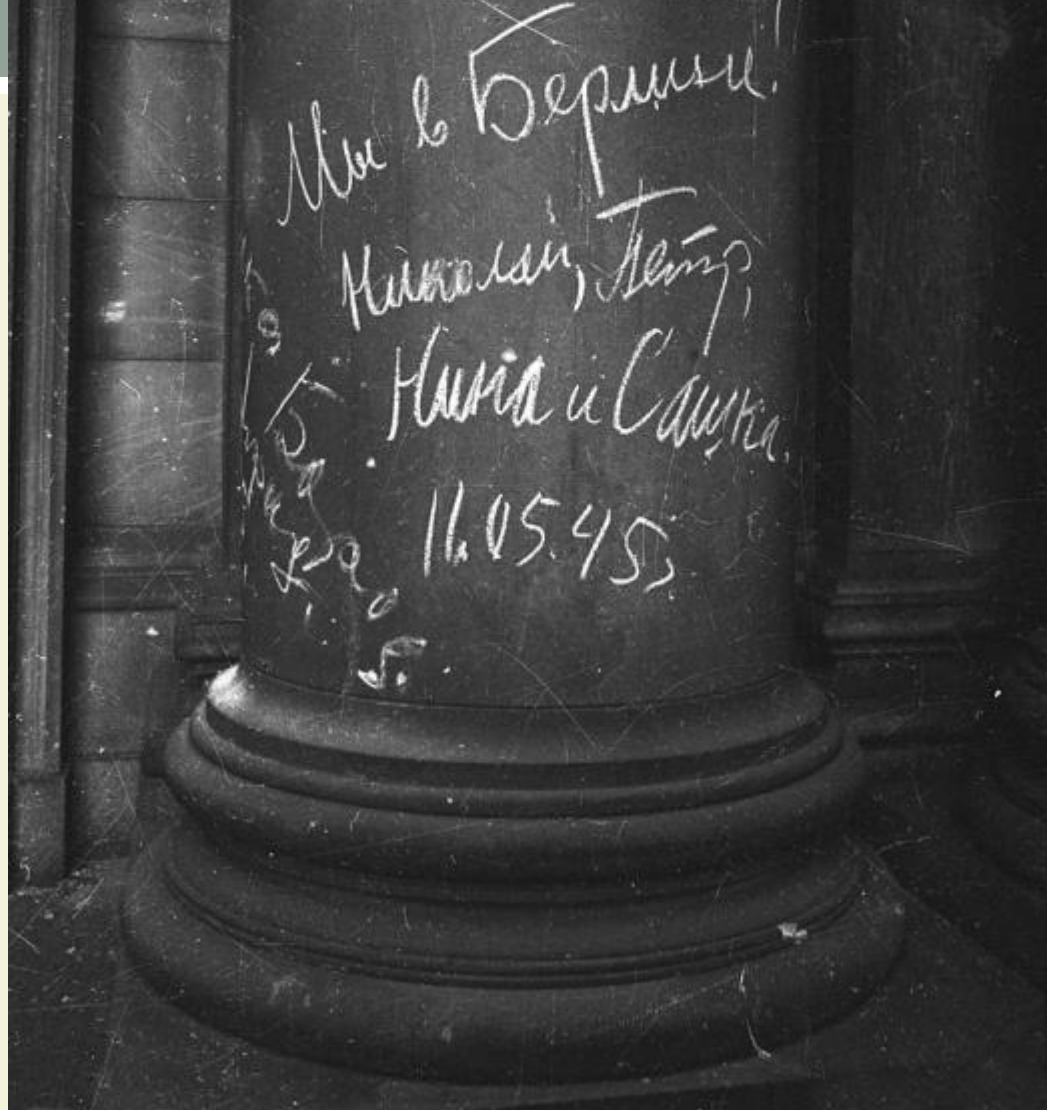 Мы в Берлине!
Николай, Петр,
Нина и Сашка.
11.05.45г.